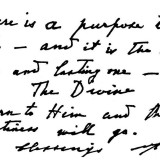 ere is a purpose i
e — and it is the
and lasting one —
The Divine
rn to Him and th
tness will go.
blessings